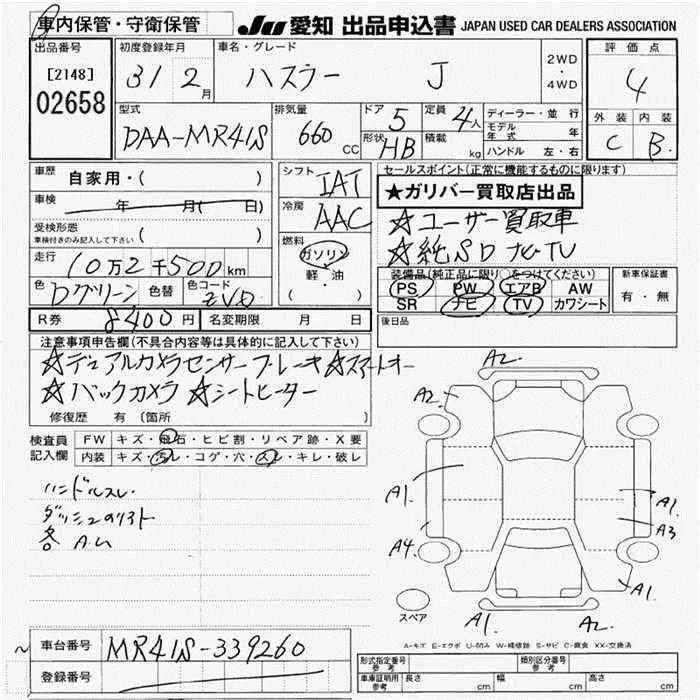 車内保管・守衛保管
JU 愛知 出品申込書 JAPAN USED CAR DEALERS ASSOCIATION
出品番号
[2148]
02658
初度登録年月
31 2月
車名・グレード
ハスラー J
2WD
・
4WD
評価点
4
外装 内装
C B
型式
DAA-MR41S
排気量
660 CC
ドア 5
形状 HB
定員 4人
積載 kg
ディーラー・並行
モデル年式 年
ハンドル 左・右
車歴 自家用・( )
車検 年 月( 日)
受検形態
車検付きのみ記入して下さい ( )
走行 10万2千500km
色 Dグリーン 色替 色コード ZVD
シフト IAT
冷房 AAC
燃料
ガソリン
軽・油
( )
セールスポイント(正常に機能するものに限ります)
★ガリバー買取店出品
☆ユーザー買取車
☆純SDナビTV
装備品(純正品に限り○をつけてください)
PS PW エアB AW
SR ナビ TV カワシート
新車保証書
有・無
R券 8400円 名変期限 月 日
後日品
注意事項申告欄(不具合内容等は具体的に記入して下さい)
☆デュアルカメラセンサーブレーキ ☆スマートキー
☆バックカメラ ☆シートヒーター
修復歴 有 (箇所 )
検査員記入欄
FW キズ・飛石・ヒビ割・リペア跡・X要
内装 キズ・汚レ・コゲ・穴・スレ・キレ・破レ
ハンドルスレ
各
A2
A2
A1
A1
A3
A4
A1
A1
A2
スペア
A-キズ E-エクボ U-凹み W-補修跡 S-サビ C-腐食 XX-交換済
車台番号 MR41S-339260
登録番号
形式指定番号 参考
類別区分番号 参考
車庫証明用 参考 長さ cm 幅 cm 高さ cm